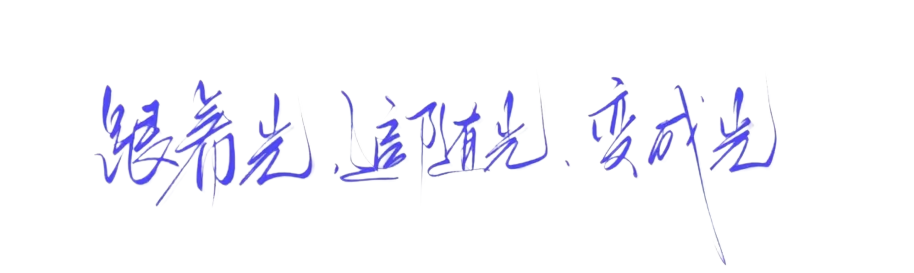 跟着光、追随光、变成光